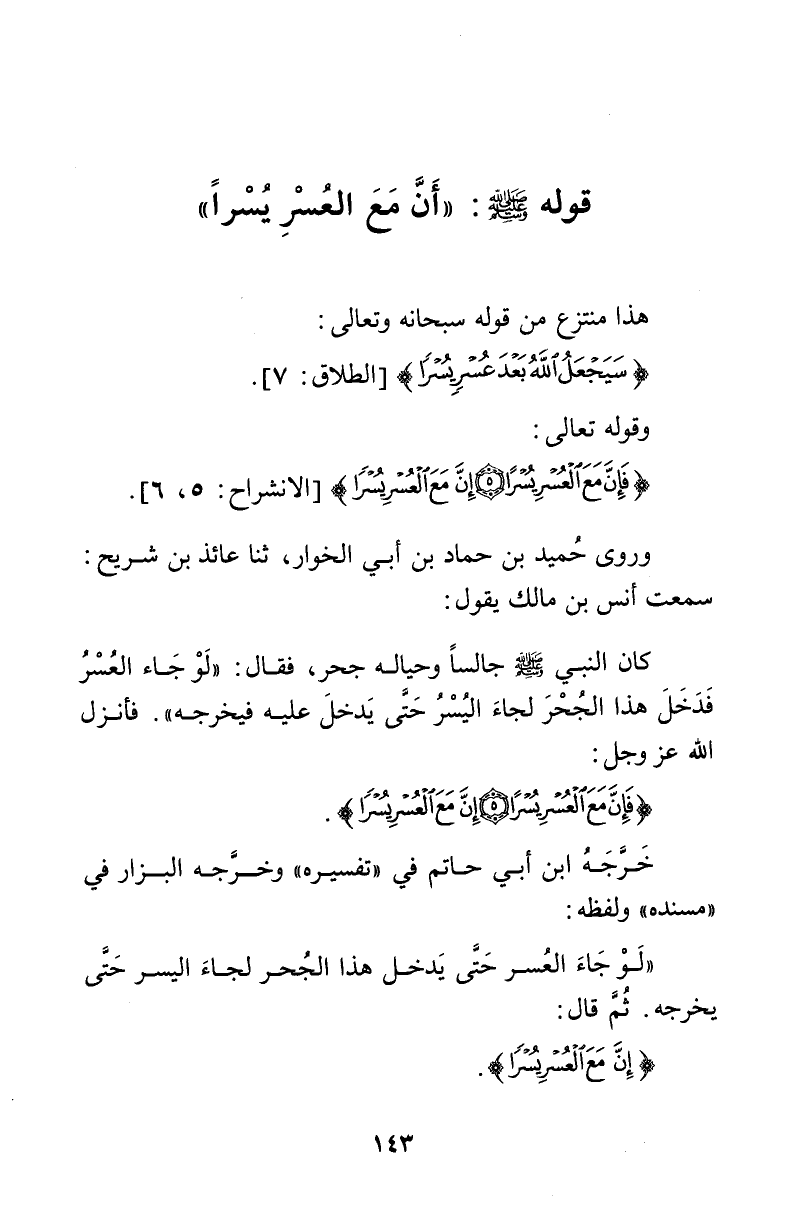 قوله ﷺ : «أَنَّ مَعَ العُسْرِ يُسْراً»
هذا منتزع من قوله سبحانه وتعالى :
﴿ سَيَجْعَلُ ٱللَّهُ بَعْدَ عُسْرٍ يُسْرًا ﴾ [الطلاق : ٧].
وقوله تعالى :
﴿ فَإِنَّ مَعَ ٱلْعُسْرِ يُسْرًا ۝٥ إِنَّ مَعَ ٱلْعُسْرِ يُسْرًا ﴾ [الانشراح : ٥، ٦].
وروى حُميد بن حماد بن أبي الخوار، ثنا عائذ بن شريح :
سمعت أنس بن مالك يقول :
كان النبي ﷺ جالساً وحياله جحر، فقال : «لَوْ جَاء العُسْرُ
فَدَخَلَ هذا الجُحْرَ لجاءَ اليُسْرُ حَتَّى يَدخلَ عليه فيخرجه». فأنزل
الله عز وجل :
﴿ فَإِنَّ مَعَ ٱلْعُسْرِ يُسْرًا ۝٥ إِنَّ مَعَ ٱلْعُسْرِ يُسْرًا ﴾ .
خَرَّجَهُ ابن أبي حاتم في «تفسيره» وخرَّجه البزار في
«مسنده» ولفظه :
«لَوْ جَاءَ العُسر حَتَّى يَدخل هذا الجُحر لجاءَ اليسر حَتَّى
يخرجه. ثُمَّ قال :
﴿ إِنَّ مَعَ ٱلْعُسْرِ يُسْرًا ﴾ .
١٤٣